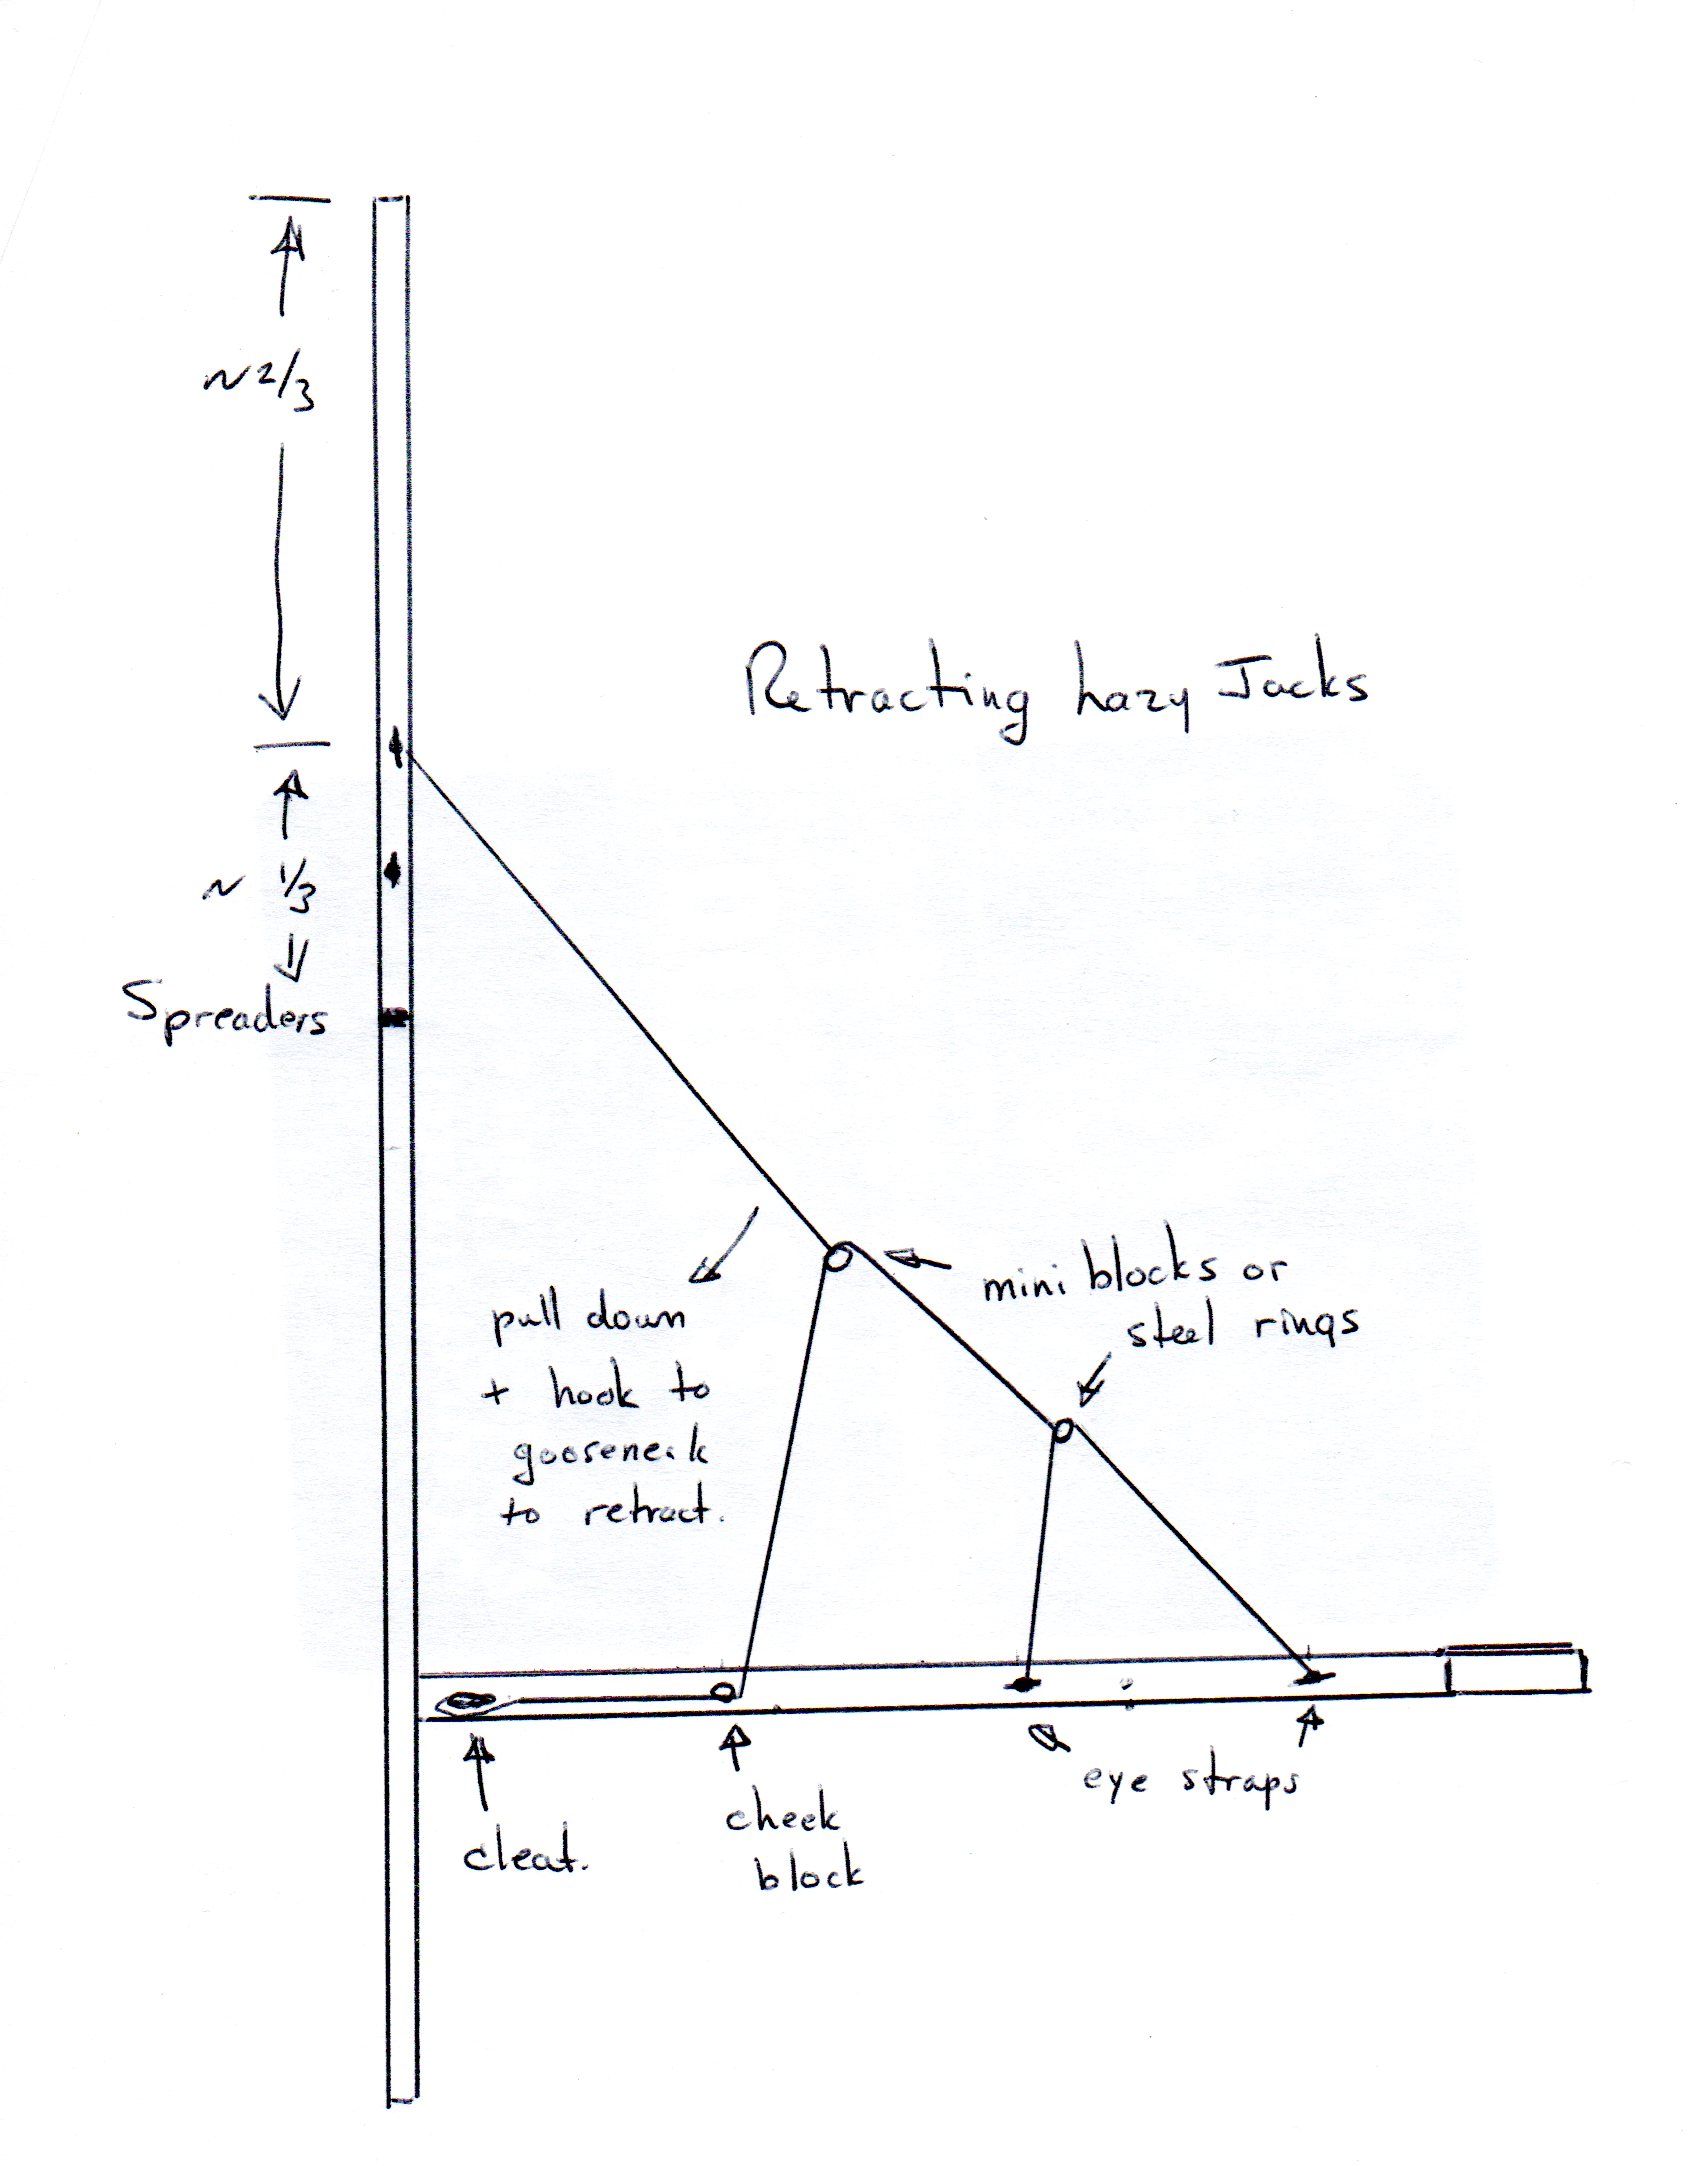 ~ 2/3
Retracting Lazy Jacks
~ 1/3
Spreaders
mini blocks or
steel rings
pull down
+ hook to
gooseneck
to retract.
eye straps
cheek
block
cleat.